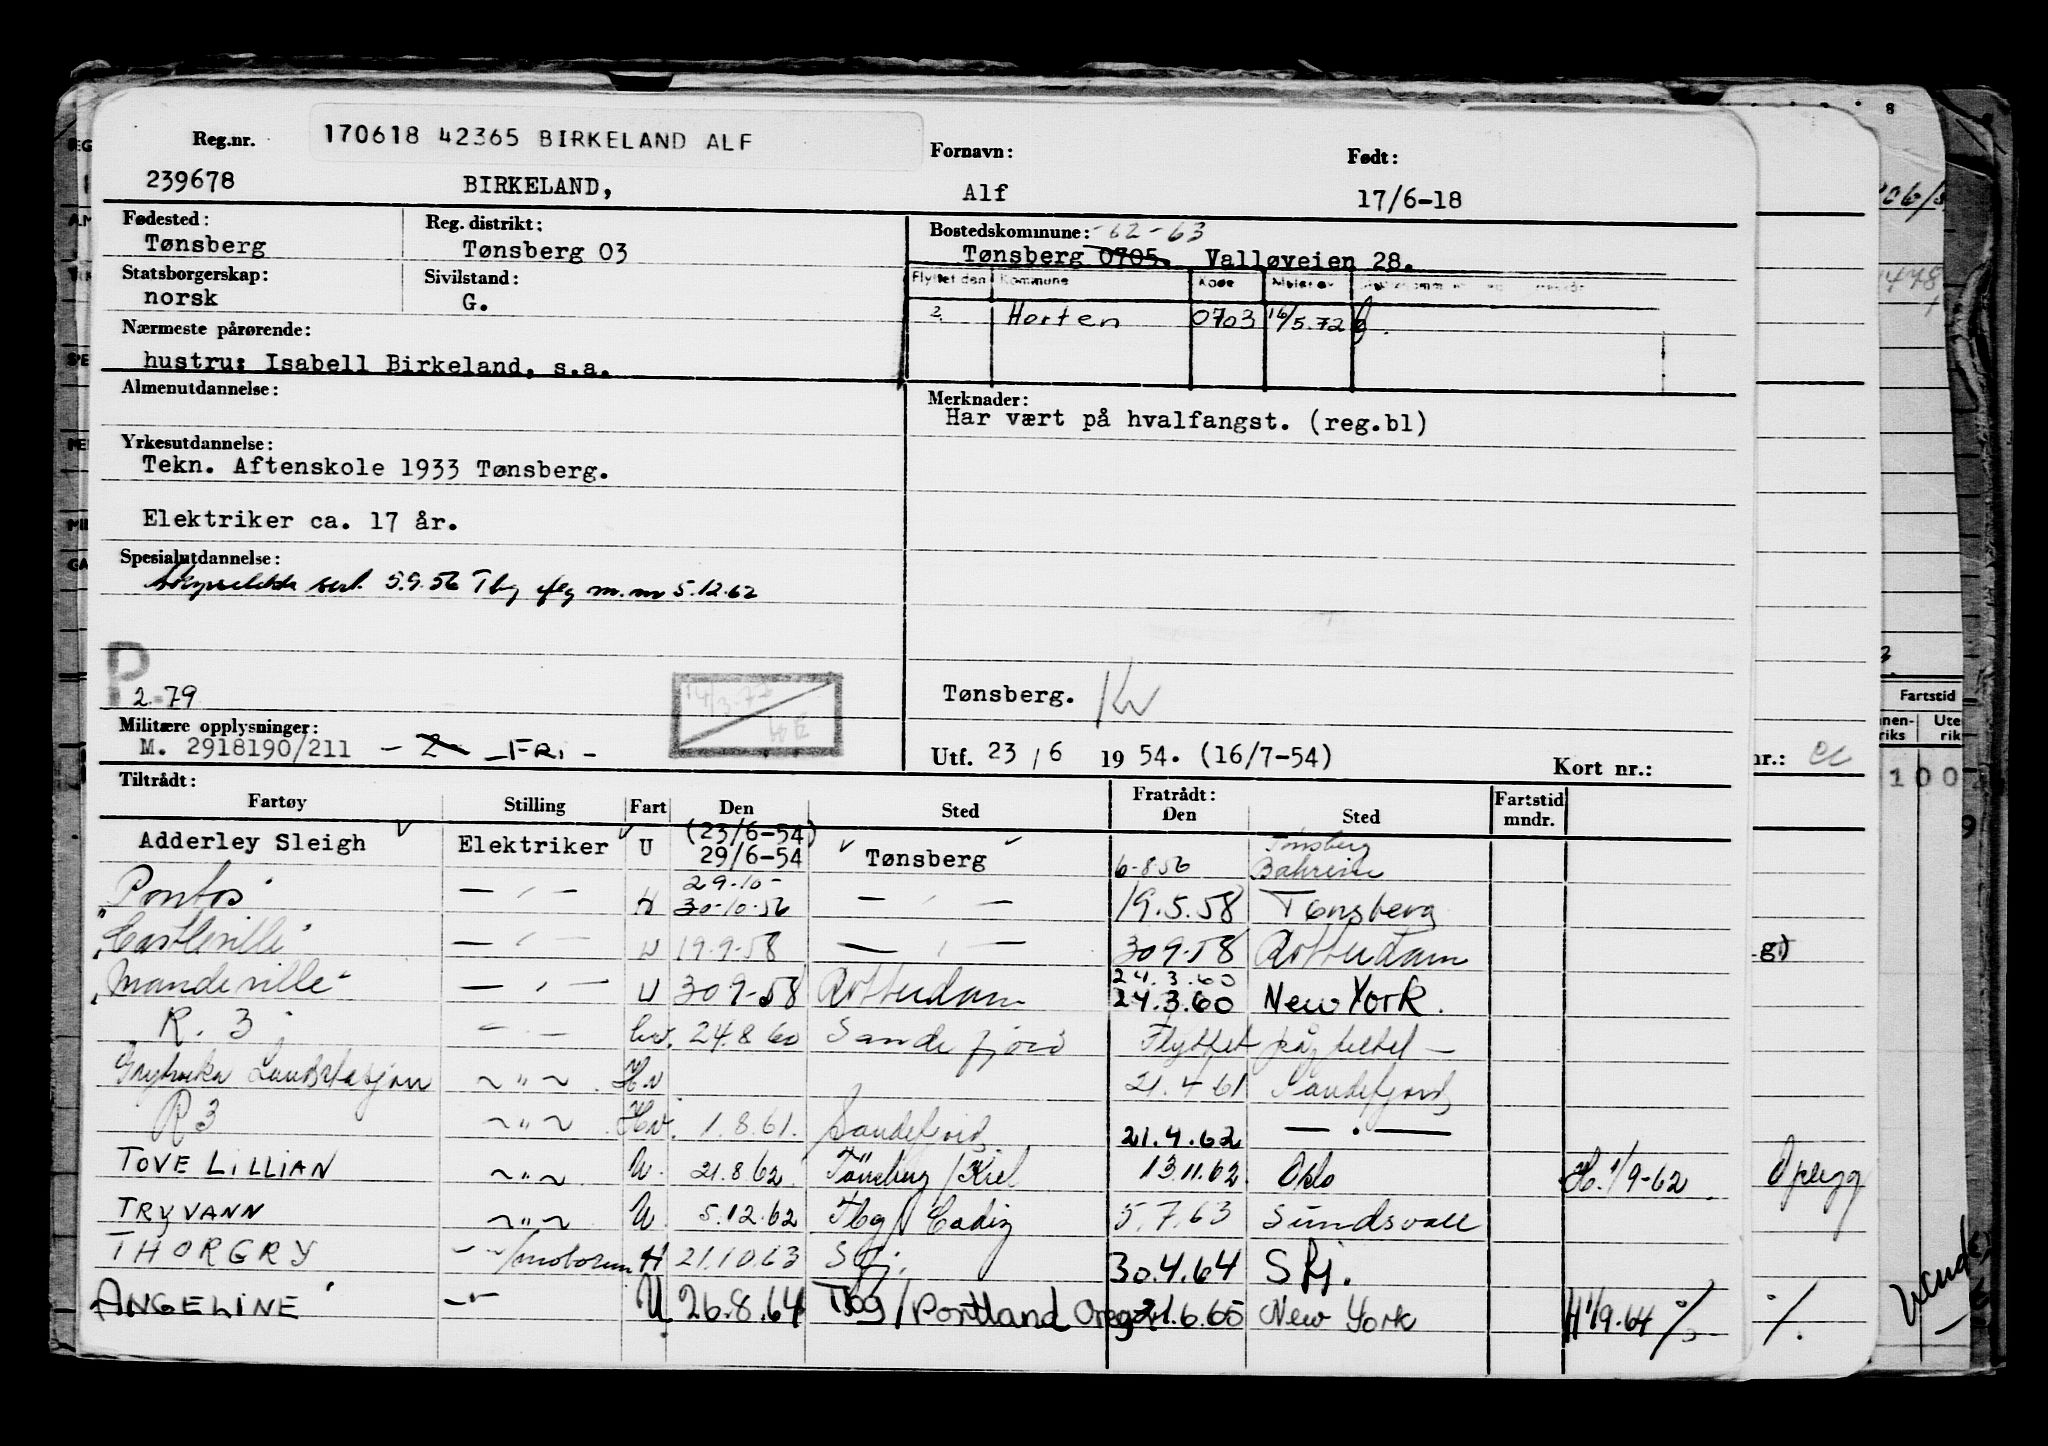 170618 42365 BIRKELAND ALF
Reg.nr. Fornavn: Født:
239678 BIRKELAND, Alf 17/6-18
Fødested: Reg. distrikt: Bostedskommune: -62-63
Tønsberg Tønsberg 03 Tønsberg 0705. Valløveien 28.
Statsborgerskap: Sivilstand: Flyttet den Kommune Kode
norsk G. Horten 0703 16/5.72
Nærmeste pårørende:
hustru: Isabell Birkeland, s.a.
Almenutdannelse: Merknader:
Har vært på hvalfangst. (reg.bl)
Yrkesutdannelse:
Tekn. Aftenskole 1933 Tønsberg.
Elektriker ca. 17 år.
Spesialutdannelse:
sert. 5.9.56 Tbg m.m 5.12.62
P
2.79 Tønsberg.
Militære opplysninger:
M. 2918190/211 - 2 - FRI - Utf. 23/6 1954. (16/7-54) Kort nr.:
Tiltrådt: Fratrådt:
Fartøy Stilling Fart Den Sted Den Sted Fartstid mndr.
Adderley Sleigh Elektriker U (23/6-54) 29/6-54 Tønsberg 6-8 56 Tønsberg Bahrein
Pontos — " — H 29.10- 30-10-56 — " — 19.5.58 Tønsberg
"Castleville" — " — U 19.9.58 — " — 30 9.58 Rotterdam
"Mandeville" — " — U 30 9-58 Rotterdam 24.3.60 24.3.60 New York.
R. 3 — " — hv. 24.8 60 Sandefjord Flyttet på, deltel —
Grytviken Landstasjon ~ " ~ Hv 21.4 61 Sandefjord
R 3 ~ " ~ Hv. 1.8.61. Sandefjord 21.4.62 — " —
TOVE LILLIAN ~ " ~ U. 21.8.62 Tönsberg / Kiel 13.11.62 Oslo H. 1/9-62
TRYVANN ~ " ~ U. 5.12.62 Tbg / Cadiz 5.7.63 Sundsvall
THORGRY — " —/motorm H 21.10.63 Sfj. 30.4.64 Sfj.
ANGELINE — " — U 26.8.64 Tbg / Portland Oreg. 21.6.65 New York H 1/9.64 %
8
Fartstid
Innen-riks Uten-riks
100
nr.:
g)
Opplegg
%
Vend